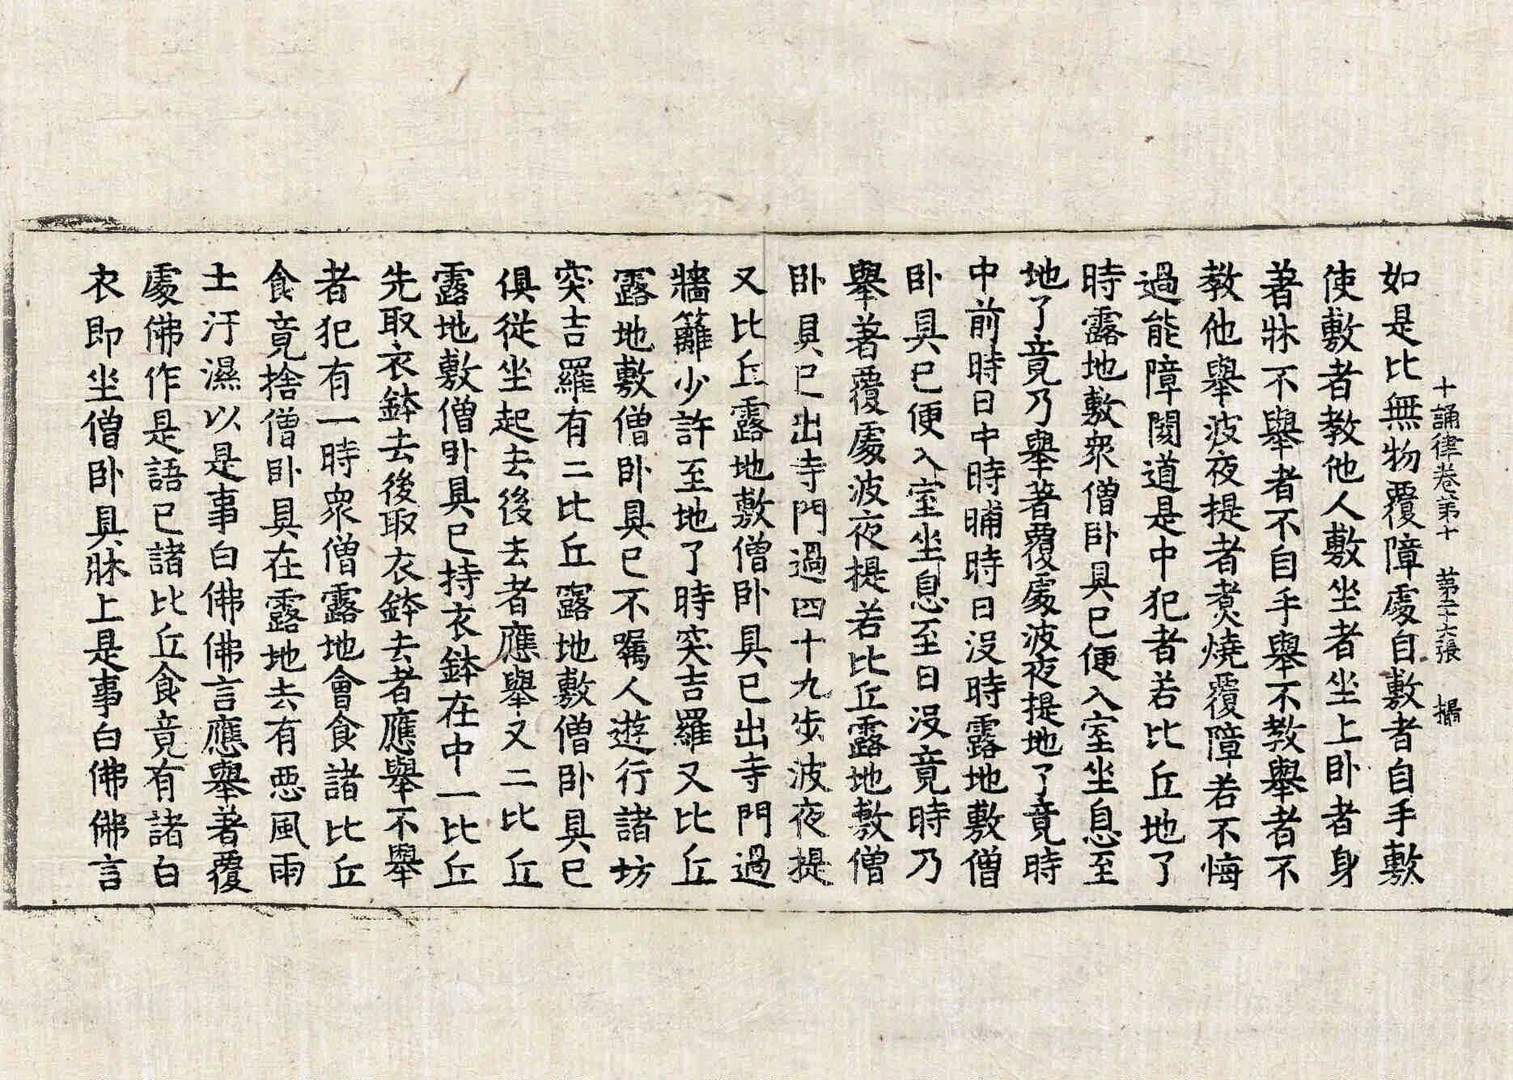 十誦律卷第十　第二十六張　攝
如是比無物覆障處自敷者自手敷
使敷者教他人敷坐者坐上卧者身
著牀不舉者不自手舉不教舉者不
教他舉波夜提者煑燒覆障若不悔
過能障閡道是中犯者若比丘地了
時露地敷衆僧卧具已便入室坐息至
地了竟乃舉著覆處波夜提地了竟時
中前時日中時晡時日没時露地敷僧
卧具已便入室坐息至日没竟時乃
舉著覆處波夜提若比丘露地敷僧
卧具已出寺門過四十九步波夜提
又比丘露地敷僧卧具已出寺門過
牆籬少許至地了時突吉羅又比丘
露地敷僧卧具已不囑人遊行諸坊
突吉羅有二比丘露地敷僧卧具已
俱從坐起去後去者應舉又二比丘
露地敷僧卧具已持衣鉢在中一比丘
先取衣鉢去後取衣鉢去者應舉不舉
者犯有一時衆僧露地會食諸比丘
食竟捨僧卧具在露地去有惡風雨
土汙濕以是事白佛佛言應舉著覆
處佛作是語已諸比丘食竟有諸白
衣即坐僧卧具牀上是事白佛佛言